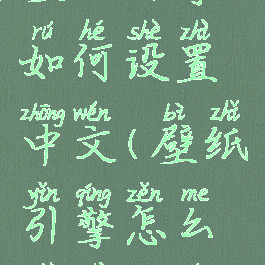 rú hé shè zhì
如何设置
zhōng wén bì zhǐ
中文(壁纸
yǐn qíng zěn me
引擎怎么